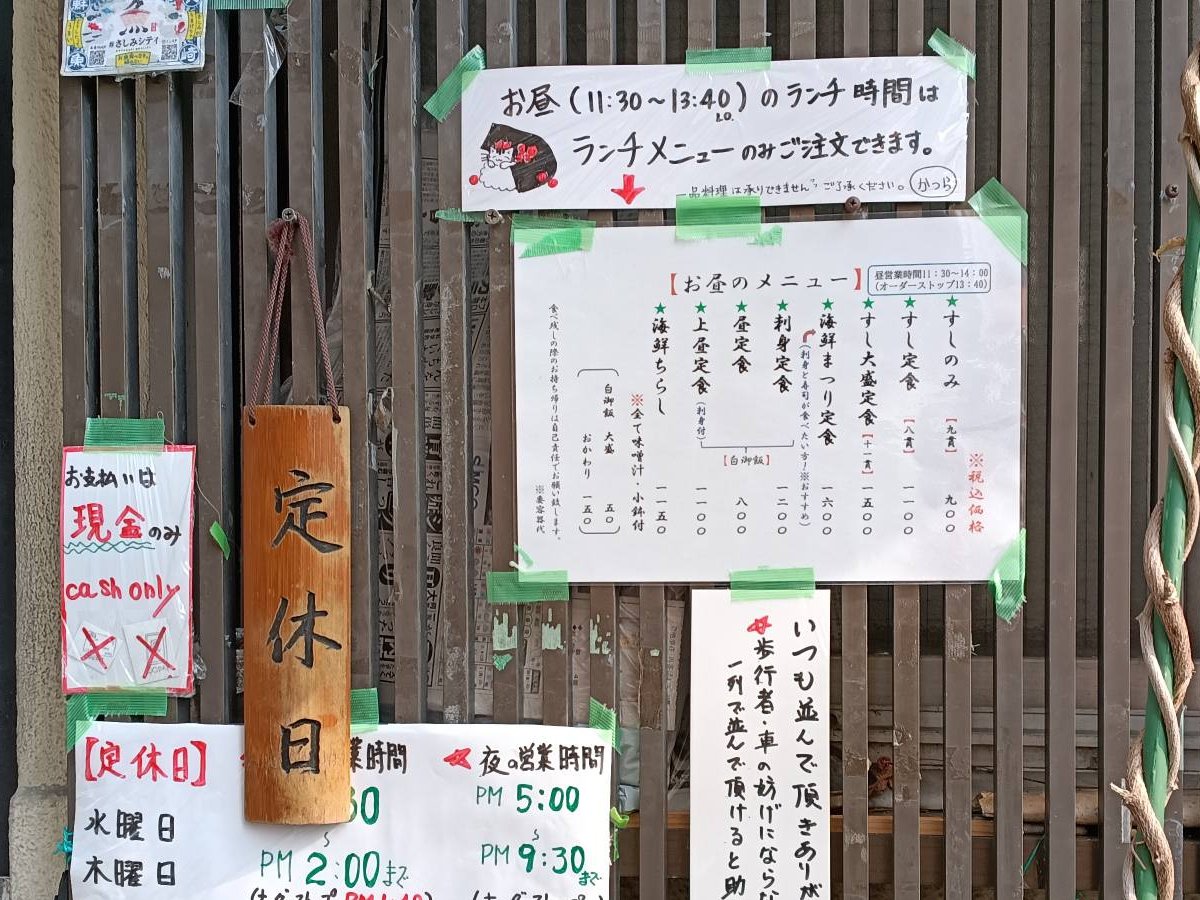 さしみシティ
お昼(11:30～13:40)のランチ時間は
L.O.
ランチメニューのみご注文できます。
一品料理は承りできません ご了承ください。
かつら
【お昼のメニュー】
昼営業時間11：30～14：00
(オーダーストップ13：40)
※税込価格
★すしのみ【九貫】 九〇〇
★すし定食【八貫】 一一〇〇
★すし大盛定食【十一貫】 一五〇〇
★海鮮まつり定食 一六〇〇
(刺身と寿司が食べたい方!※おすすめ)
★刺身定食 一二〇〇
★昼定食 八〇〇
★上昼定食(刺身付) 一一〇〇
【白御飯】
★海鮮ちらし 一一五〇
※全て味噌汁・小鉢付
白御飯 大盛 五〇
おかわり 一五〇
食べ残しの際のお持ち帰りは自己責任でお願い致します。
※要容器代
お支払いは
現金のみ
cash only
定休日
【定休日】
水曜日
木曜日
業時間
30
～
PM 2:00まで
夜の営業時間
PM 5:00
～
PM 9:30まで
いつも並んで頂きありが
歩行者・車の妨げにならな
一列で並んで頂けると助